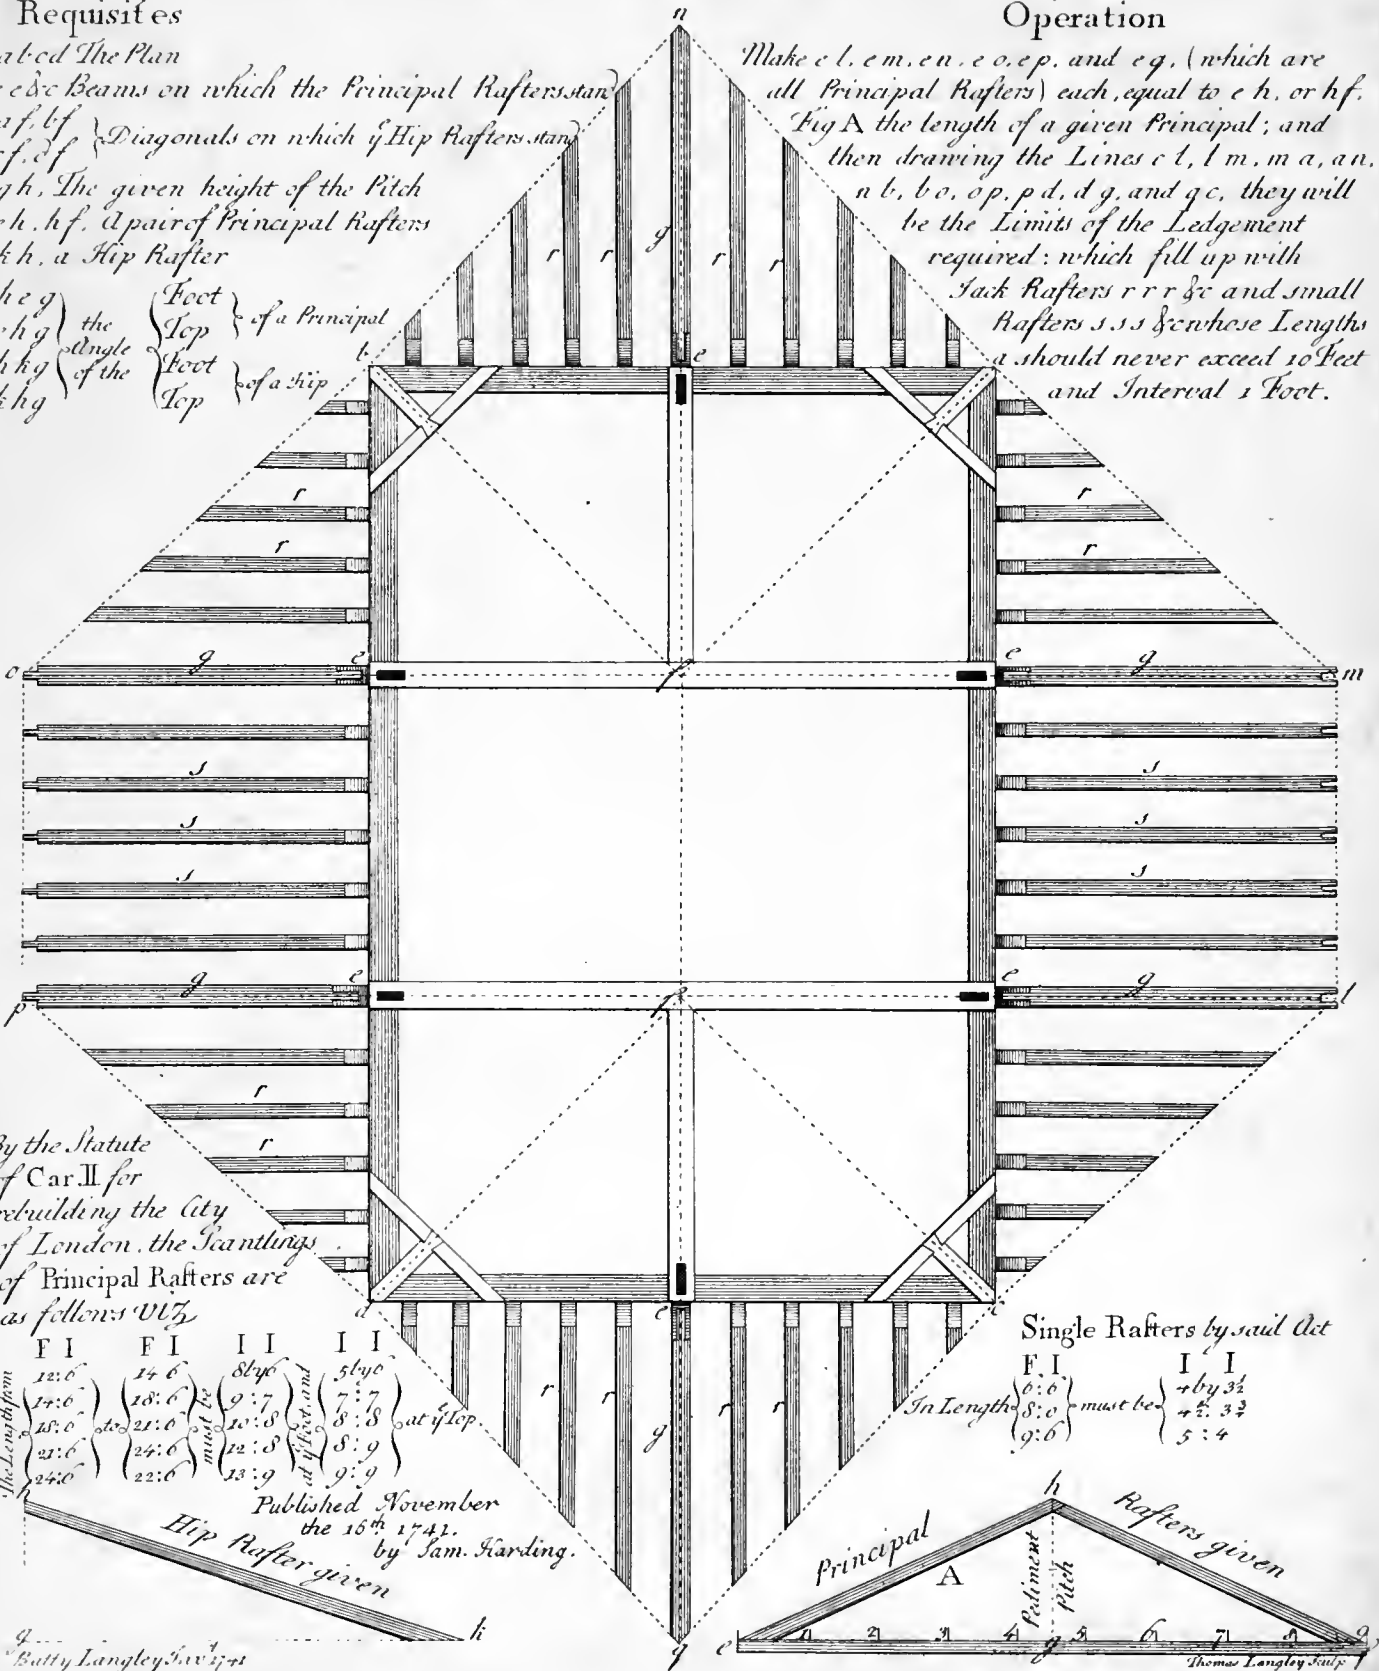 Requisites
abcd The Plan
e &c Beams on which the Principal Rafters stand
af, bf
cf, df } Diagonals on which yᵉ Hip Rafters stand
gh, The given height of the Pitch
eh, hf, A pair of Principal Rafters
kh, a Hip Rafter
heg
ehg
hkg
khg
the Angle of the
Foot
Top
of a Principal
Foot
Top
of a Hip
Operation
Make el, em, en, eo, ep, and eq, (which are
all Principal Rafters) each, equal to eh, or hf.
Fig A the length of a given Principal; and
then drawing the Lines cl, lm, ma, an,
nb, bo, op, pd, dg, and qc, they will
be the Limits of the Ledgement
required: which fill up with
Jack Rafters r r r &c and small
Rafters s s s &c whose Lengths
should never exceed 10 Feet
and Interval 1 Foot.
n
g
r r r r
b e a
r r
r r
o g e f e g m
s s
s s
s s
p g e f e g l
r
r
d e c
r r g r r
q
By the Statute
of Car. II for
rebuilding the City
of London, the Scantlings
of Principal Rafters are
as follows Viz
F I F I I I I I
The Length from
12:6 14 6 8by6 5by6
14:6 18:6 9:7 7:7
18:6 to 21:6 must be 10:8 at yᵉ Foot, and 8:8 at yᵉ Top
21:6 24:6 12:8 8:9
24:6 22:6 13:9 9:9
Single Rafters by said Act
F. I I I
6:6 4 by 3½
In Length 8:0 must be 4½: 3¾
9:6 5:4
Published November
the 16th 1741.
by Sam. Harding.
h
Hip Rafter given
g k
Batty Langley Invᵗ 1741
h
Principal Rafters given
A
Pediment Pitch
e 1 2 3 4 g 5 6 7 8 9 f
Thomas Langley Sculp